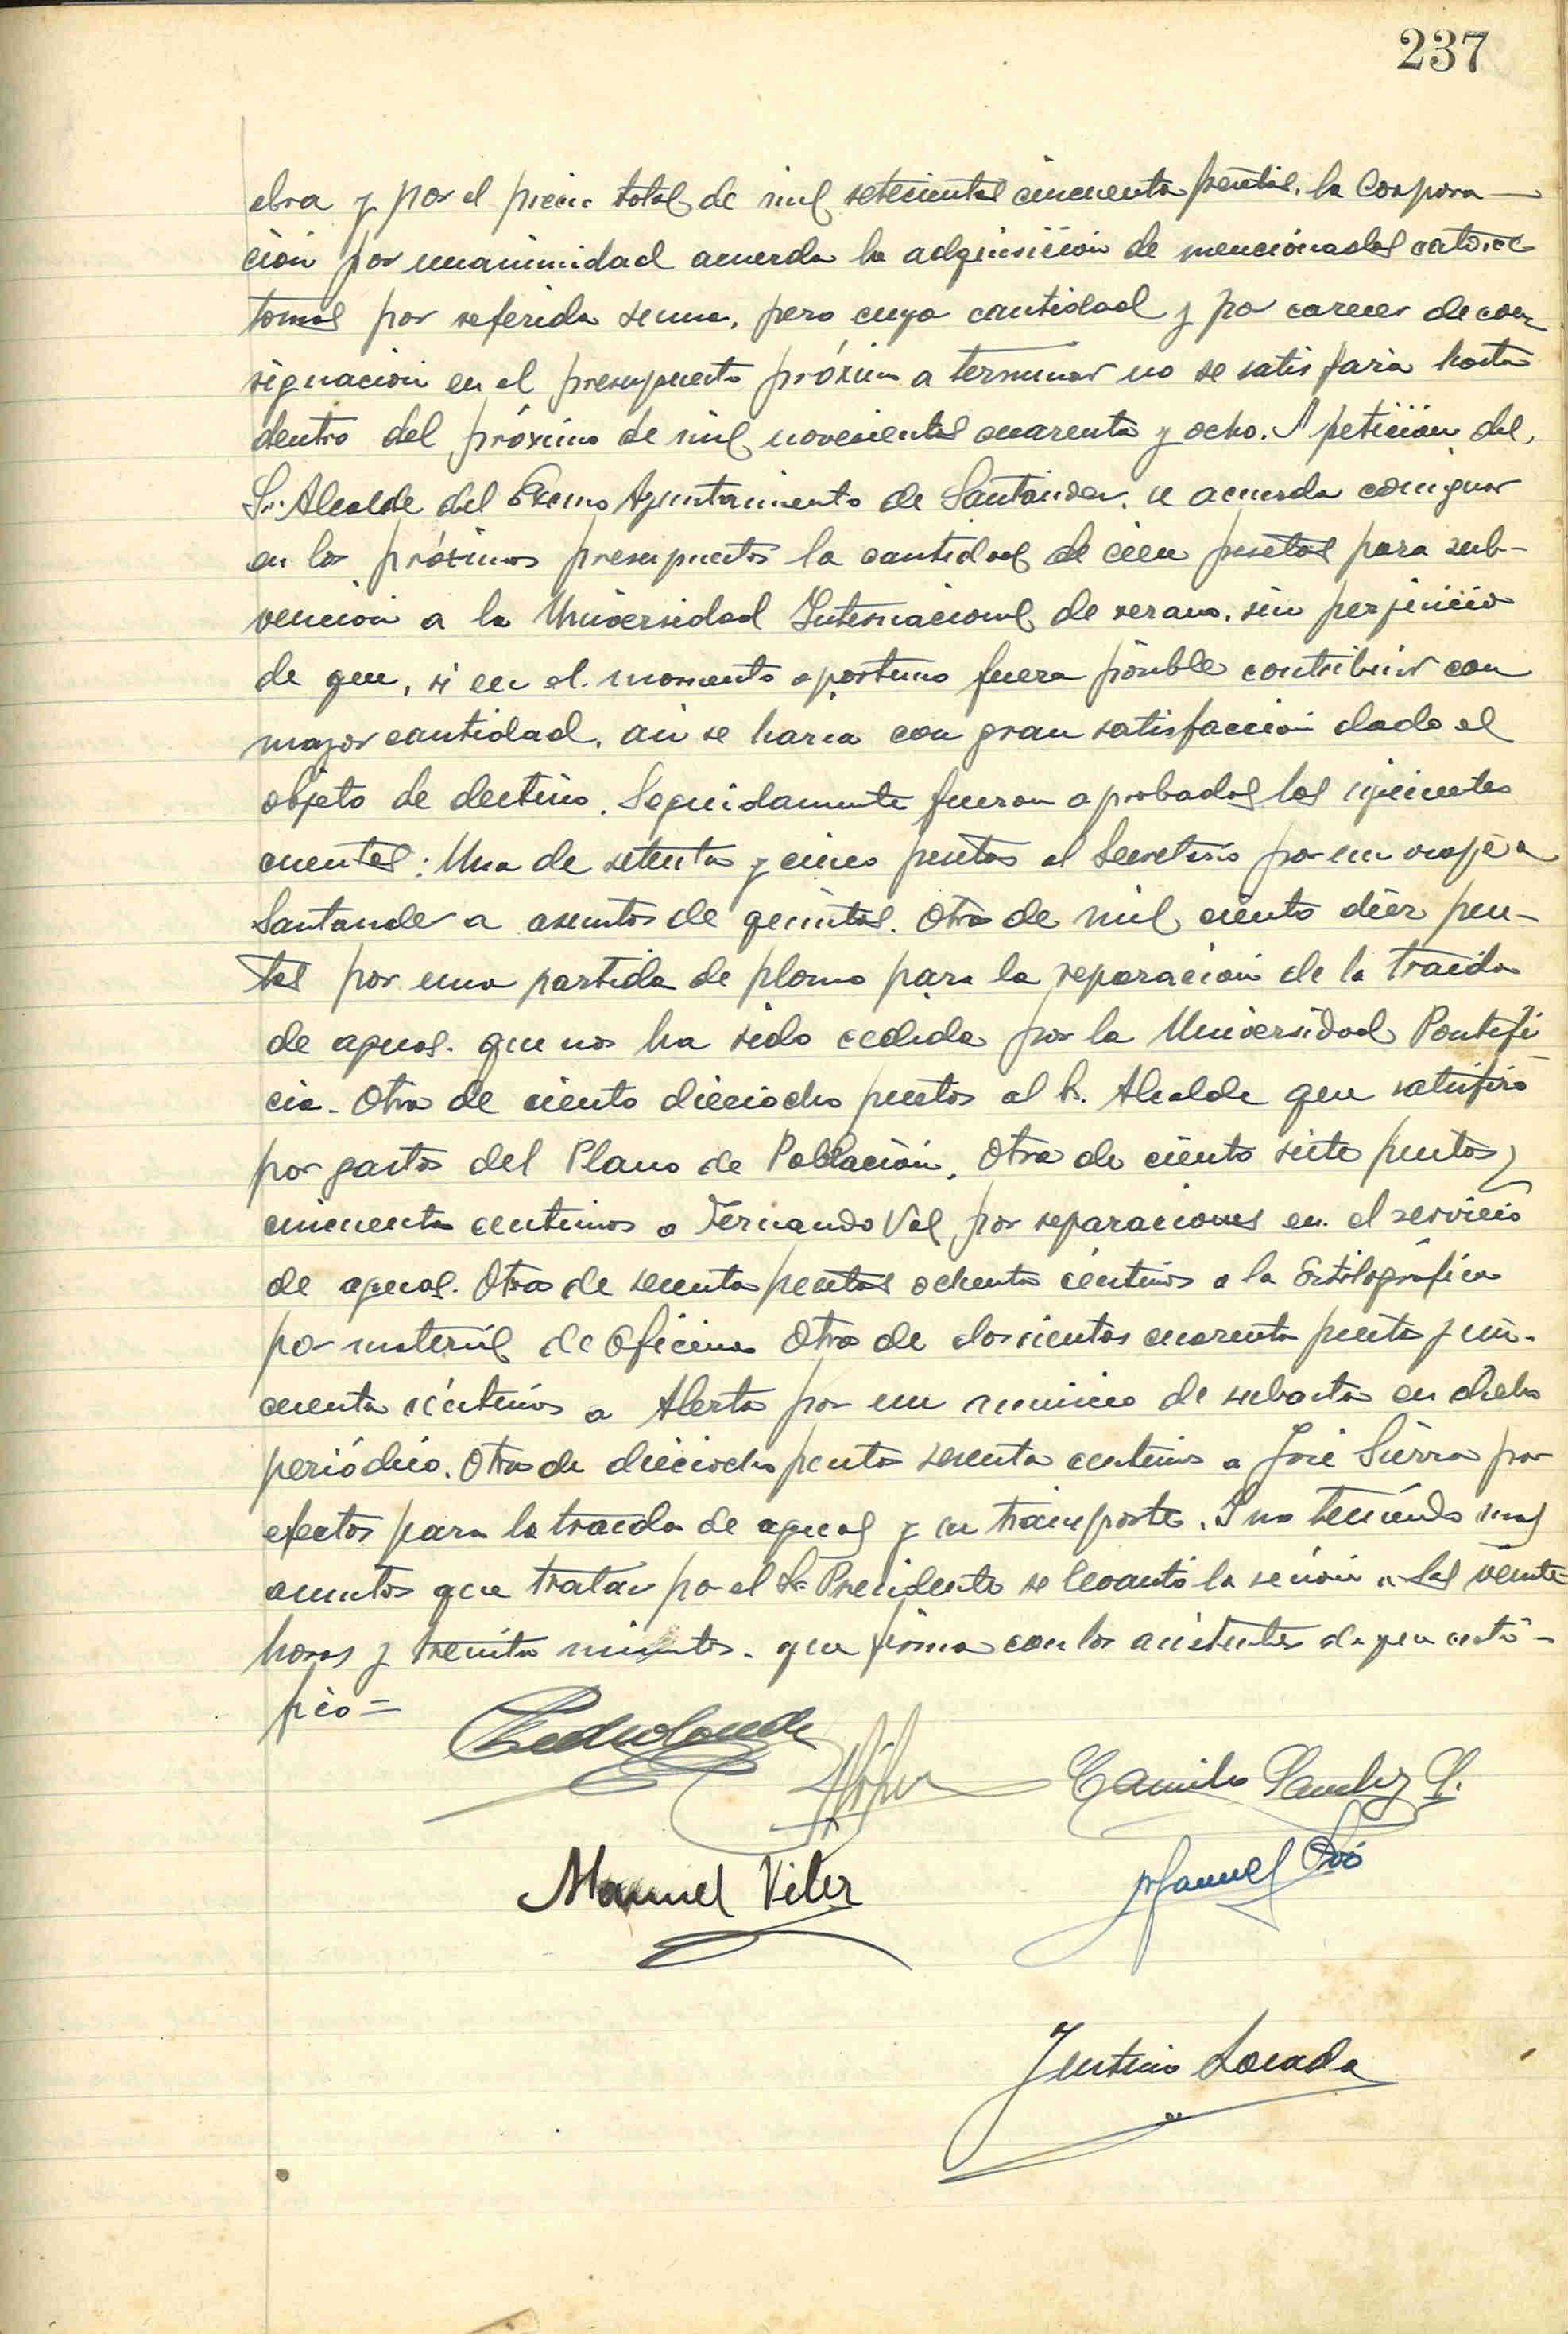 237
obra y por el precio total de mil setecientas cincuenta pesetas, la Corpora-
ción por unanimidad acuerda la adquisición de mencionados catorce
tomos por referida suma, pero cuya cantidad y por carecer de con
signación en el presupuesto próximo a terminar no se satisfaria hasta
dentro del próximo de mil novecientos cuarenta y ocho. A petición del
Sr. Alcalde del Excmo Ayuntamiento de Santander, se acuerda consignar
en los próximos presupuestos la cantidad de cien pesetas para sub-
vención a la Universidad Internacional de verano, sin perjuicio
de que, si en el momento oportuno fuera posible contribuir con
mayor cantidad, asi se haria con gran satisfacción dado el
objeto de destino. Seguidamente fueron aprobadas las siguientes
cuentas: Una de setenta y cinco pesetas al Secretario por un viaje a
Santander a asuntos de quintas. Otra de mil ciento diez pese-
tas por una partida de plomo para la reparación de la traida
de aguas. que nos ha sido cedida por la Universidad Pontifi
cia. Otra de ciento dieciocho pesetas al Sr. Alcalde que satisfizo
por gastos del Plano de Población. Otra de ciento siete pesetas y
cincuenta centimos a Fernando Val por reparaciones en el servicio
de aguas. Otra de sesenta pesetas ochenta céntimos a la Estilográfica
por material de Oficina Otra de doscientas cuarenta pesetas y cin-
cuenta céntimos a Alerta por un anuncio de subasta en dicho
periódico. Otra de dieciocho pesetas sesenta centimos a José Sierra por
efectos para la traida de aguas y su transporte. Y no teniendo mas
asuntos que tratar por el Sr. Presidente se levantó la sesión a las veinte
horas y treinta minutos. que firma con los asistentes de que certi-
fico =
Camilo Sanchez G.
Manuel Vélez
Manuel
Justino Losada